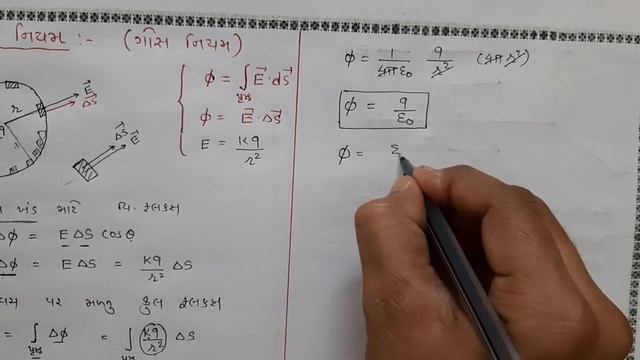 નિયમ :- (ગૉસ નિયમ)
E⃗
ΔS⃗
r
q
ΔS⃗
E⃗
ϕ = ∫પૃષ્ઠ E⃗ · dS⃗
ϕ = E⃗ · ΔS⃗
E = kq / r²
ખંડ માટે વિ. ફ્લક્સ
Δϕ = E ΔS cosθ
Δϕ = E ΔS = kq / r² ΔS
પર મળતુ કુલ ફ્લક્સ
= ∫પૃષ્ઠ Δϕ = ∫પૃષ્ઠ (kq / r²) ΔS
ϕ = 1 / 4πε₀ q / r² (4πr²)
ϕ = q / ε₀
ϕ = Σ